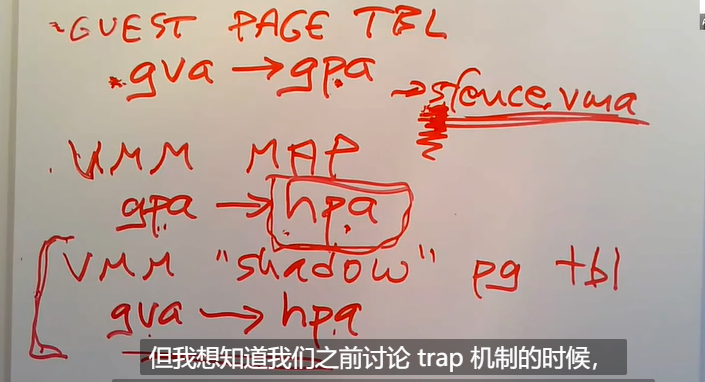 GUEST PAGE TBL
gva → gpa
→ sfence.vma
VMM MAP
gpa → hpa
VMM "shadow" pg tbl
gva → hpa
但我想知道我们之前讨论 trap 机制的时候，